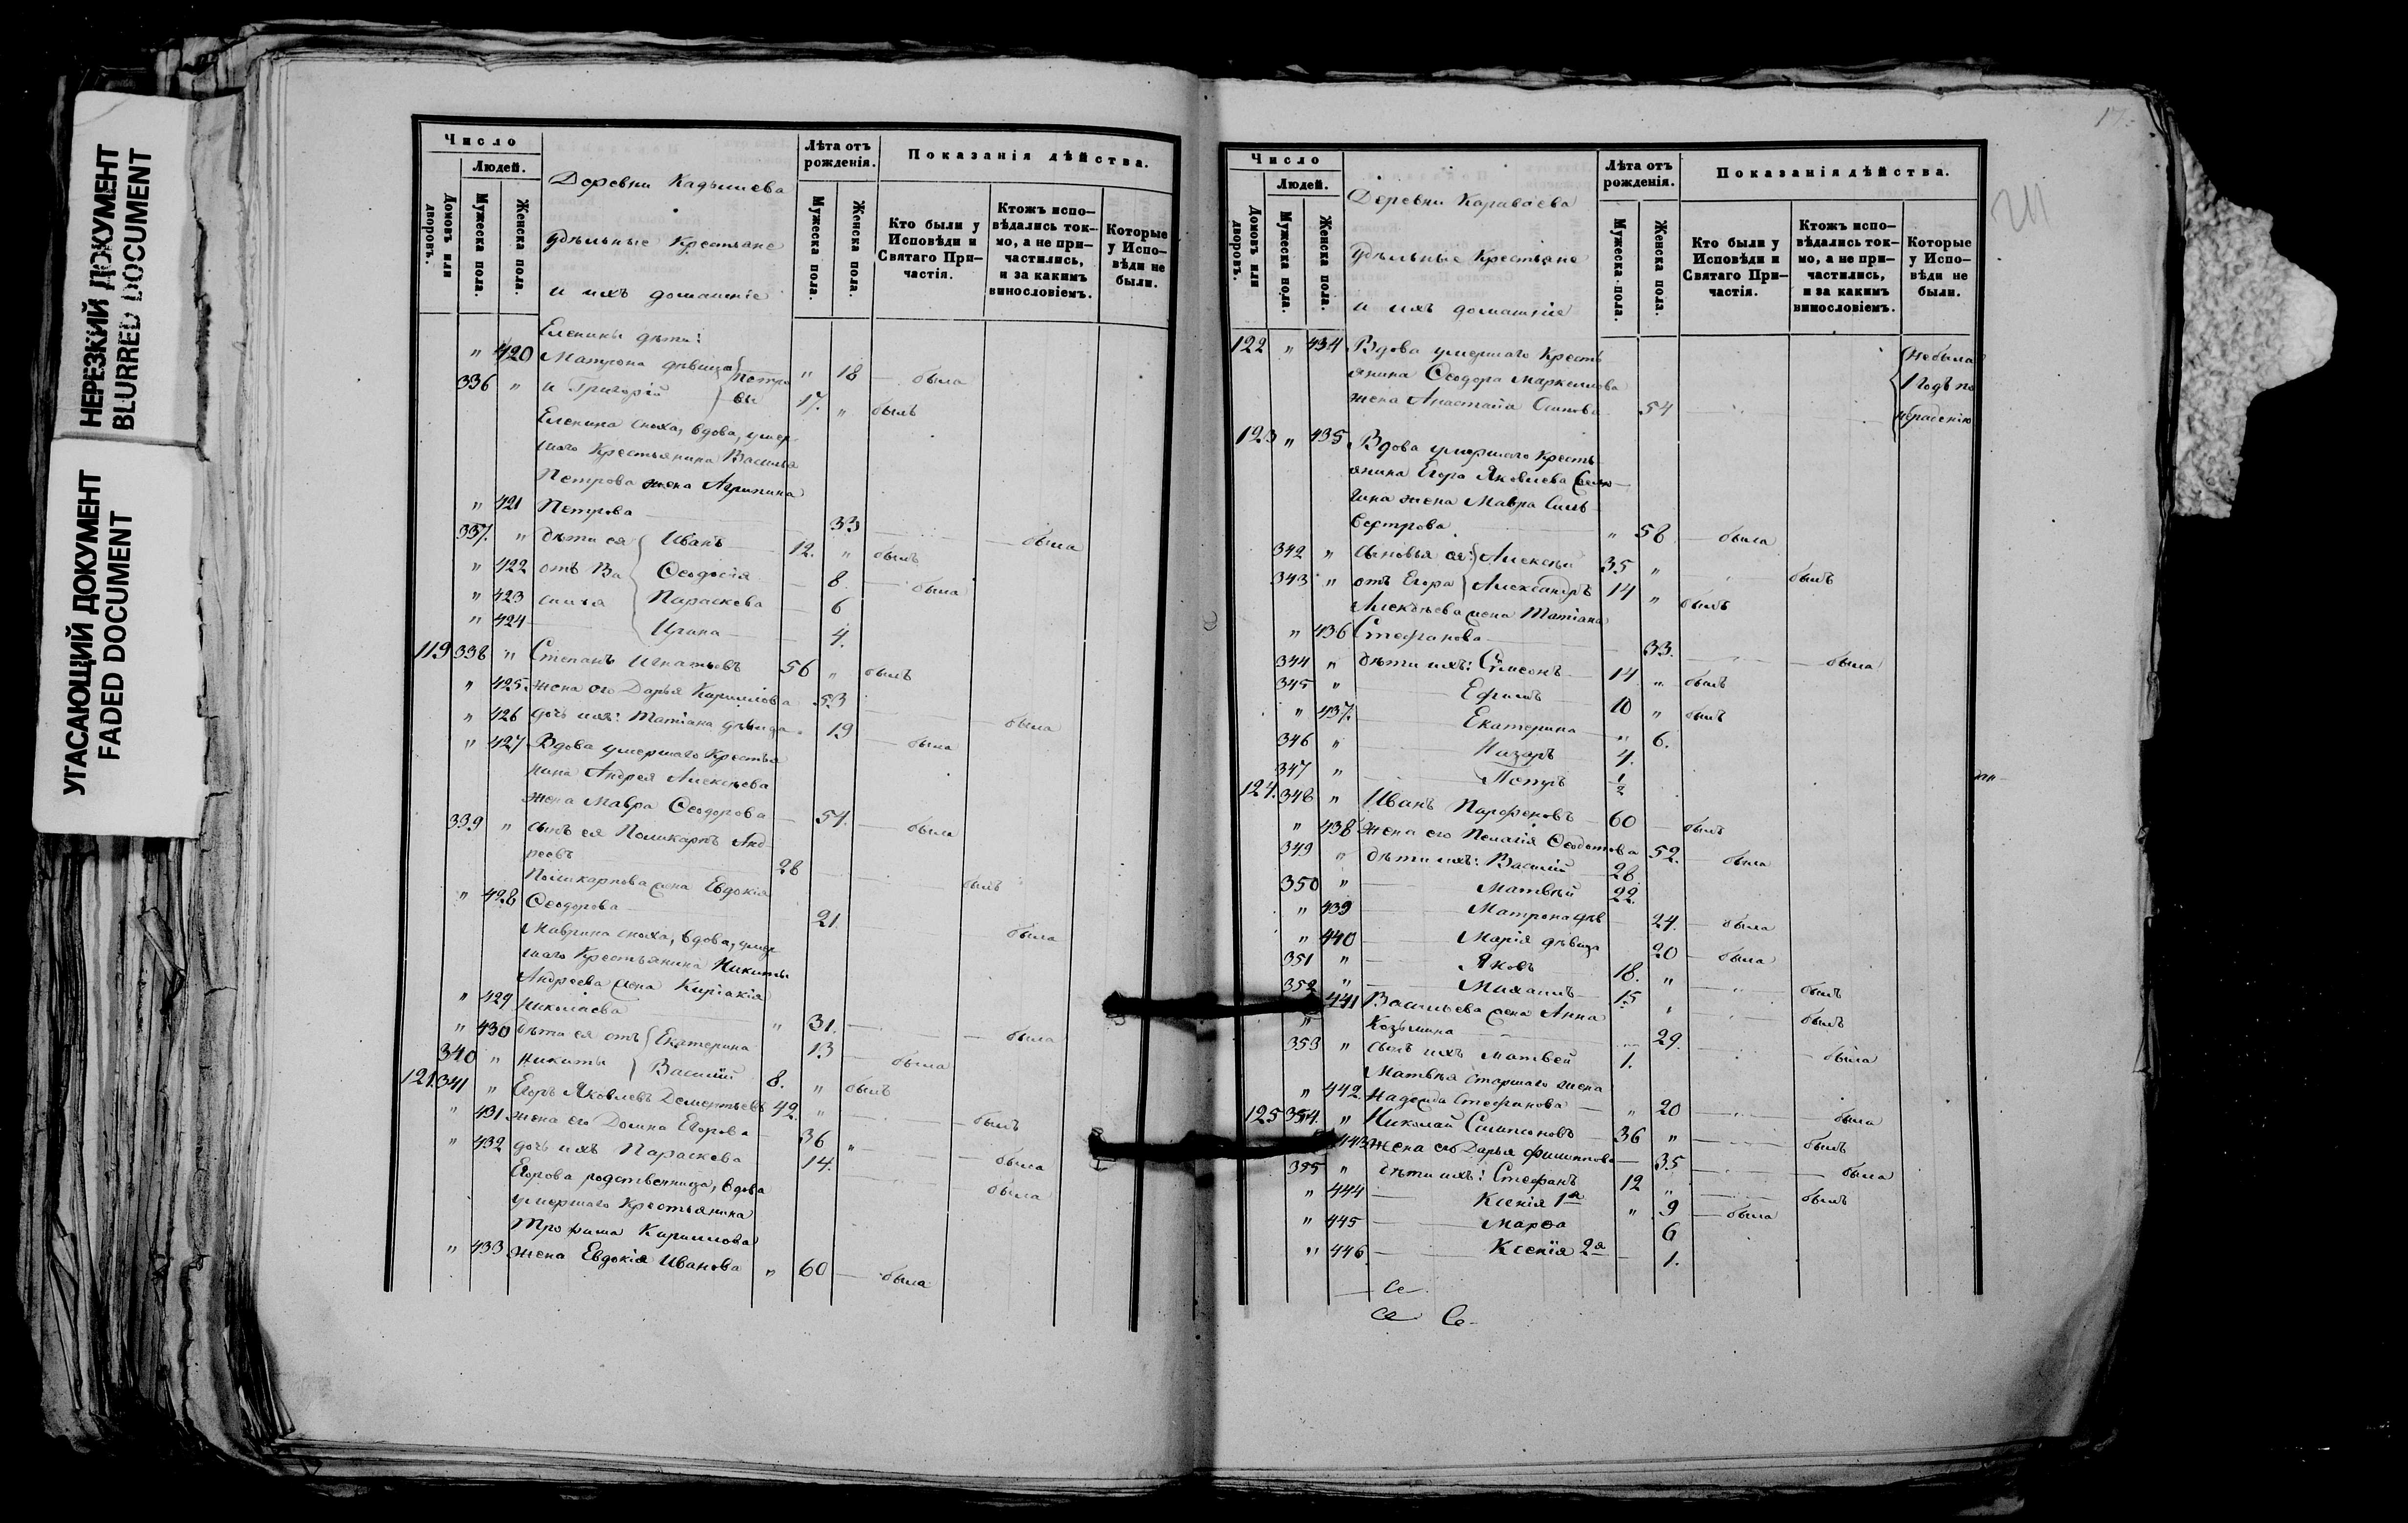 НЕРЕЗКИЙ ДОКУМЕНТ
BLURRED DOCUMENT
УГАСАЮЩИЙ ДОКУМЕНТ
FADED DOCUMENT
Число
Людей.
Домовъ или дворовъ.
Мужеска пола.
Женска пола.
Деревни Кадышева
Удѣльные Крестьяне
и ихъ домашніе
Лѣта отъ рожденія.
Мужеска пола.
Женска пола.
Показанія дѣйства.
Кто были у Исповѣди и Святаго При-частія.
Ктожъ испо-вѣдались ток-мо, а не при-частились, и за какимъ винословіемъ.
Которые у Испо-вѣди не были.
Еленины дѣти:
" 420 Матрона дѣвица } Петро " 18 — была
336 " и Григорій } вы 17. " былъ
Еленина сноха, вдова, умер
шаго Крестьянина Василья
Петрова жена Агрипина
" 421 Петрова 33 — была
337. " дѣти ея { Иванъ 12. " былъ
" 422 отъ Ва { Ѳеодосія — 8 — была
" 423 силья { Параскева — 6
" 424 { Ирина — 4.
119 338 " Степанъ Игнатьевъ 56 " былъ
" 425. жена его Дарья Кириллова 53 — была
" 426 дочь ихъ: Татіана дѣвица 19 — была
" 427 Вдова умершаго Крестья
нина Андрея Алексѣева
жена Мавра Ѳеодорова — 54. — была
339 " сынъ ея Поликарпъ Анд
реевъ 28 былъ
Поликарпова жена Евдокія
" 428 Ѳеодорова 21 была
Маврина сноха, вдова, умер
шаго Крестьянина Никиты
Андреева жена Киріакія
" 429 Николаева " 31. — была
" 430 дѣти ея отъ { Екатерина 13 — была
340 " Никиты } Василій 8. " былъ
121. 341 " Егоръ Яковлевъ Дементьевъ 42. " — былъ
" 431. жена его Домна Егорова 36 " — была
" 432 дочь ихъ Параскева 14. — была
Егорова родственница, вдова
умершаго Крестьянина
Трофима Кириллова
" 433 жена Евдокія Иванова " 60 — была
Число
Людей.
Домовъ или дворовъ.
Мужеска пола.
Женска пола.
Деревни Караваева
Удѣльные Крестьяне
и ихъ домашніе
Лѣта отъ рожденія.
Мужеска пола.
Женска пола.
Показанія дѣйства.
Кто были у Исповѣди и Святаго При-частія.
Ктожъ испо-вѣдались ток-мо, а не при-частились, и за какимъ винословіемъ.
Которые у Испо-вѣди не были.
211
122 " 434 Вдова умершаго Кресть не была
янина Ѳеодора Маркелова 1 годъ по
жена Анастасія Осипова 54 нераденію
123 " 435 Вдова умершаго Кресть
янина Егора Яковлева
жена Мавра Силь
вестрова " 58 — была
342 " сыновья ея: { Алексѣй 35 " былъ
343 " отъ Егора } Александръ 14 " былъ
Алексѣева жена Татіана
" 436 Стефанова 33. — была
344 " дѣти ихъ: Симеонъ 14 " былъ
345 " Ефимъ 10 " былъ
" 437. Екатерина " 6.
346 " Назаръ 4.
347 " Петръ 1/2
124. 348 " Иванъ Парфеновъ 60 — былъ
" 438 жена его Пелагія Ѳеодотова 52. — была
349 " дѣти ихъ: Василій 28.
350 " Матвѣй 22.
" 439 Матрона дѣв 24. — была
" 440 Марія дѣвица 20 — была
351 " Яковъ 18. " былъ
352 " Михаилъ 15 " былъ
" 441 Васильева жена Анна
Козьмина 29. — была
353 " сынъ ихъ Матвей 1.
Матвѣя старшаго жена
" 442. Надежда Стефанова — " 20 — была
125 354. " Николай 36 " — былъ
443 жена его Дарья Филиппова — 35 — была
355 " дѣти ихъ: Стефанъ 12 " былъ
" 444 Ксенія 1я " 9 — была
" 445 Марѳа 6
" 446 Ксенія 2я 1.